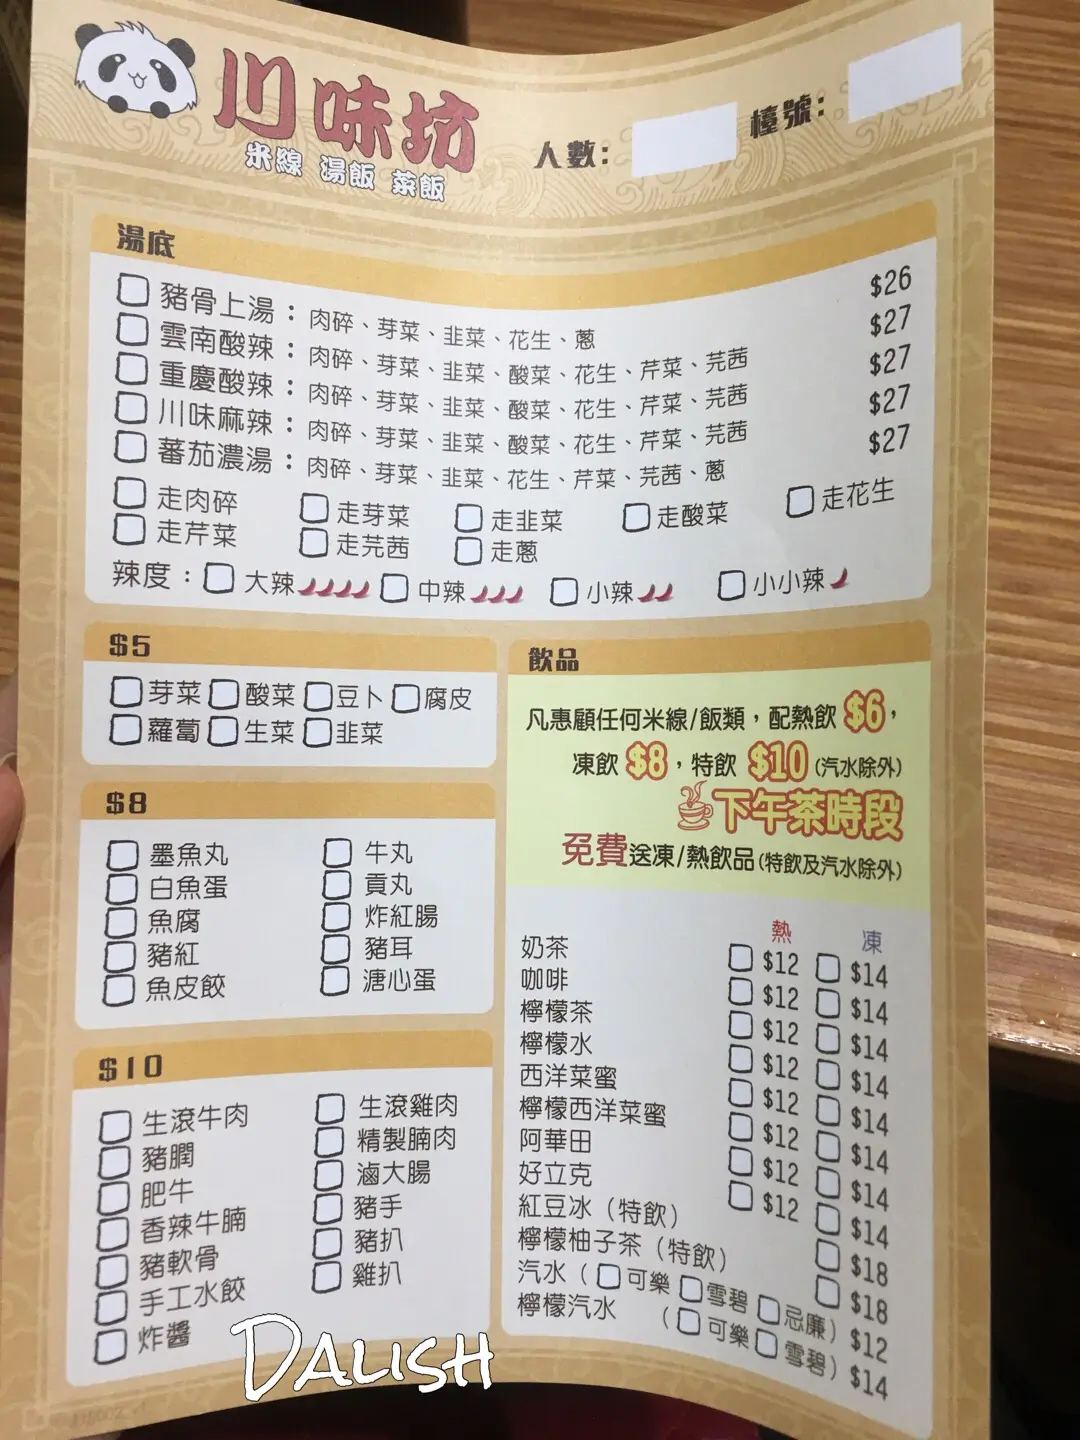 川味坊
米線 湯飯 菜飯
人數：
檯號：
湯底
豬骨上湯：肉碎、芽菜、韭菜、花生、蔥 $26
雲南酸辣：肉碎、芽菜、韭菜、酸菜、花生、芹菜、芫茜 $27
重慶酸辣：肉碎、芽菜、韭菜、酸菜、花生、芹菜、芫茜 $27
川味麻辣：肉碎、芽菜、韭菜、酸菜、花生、芹菜、芫茜 $27
蕃茄濃湯：肉碎、芽菜、韭菜、花生、芹菜、芫茜、蔥 $27
走肉碎 走芽菜 走韭菜 走酸菜 走花生
走芹菜 走芫茜 走蔥
辣度：大辣 中辣 小辣 小小辣
$5
芽菜 酸菜 豆卜 腐皮
蘿蔔 生菜 韭菜
$8
墨魚丸 牛丸
白魚蛋 貢丸
魚腐 炸紅腸
豬紅 豬耳
魚皮餃 溏心蛋
$10
生滾牛肉 生滾雞肉
豬膶 精製腩肉
肥牛 滷大腸
香辣牛腩 豬手
豬軟骨 豬扒
手工水餃 雞扒
炸醬
飲品
凡惠顧任何米線/飯類，配熱飲$6，
凍飲$8，特飲$10(汽水除外)
下午茶時段
免費送凍/熱飲品(特飲及汽水除外)
熱 凍
奶茶 $12 $14
咖啡 $12 $14
檸檬茶 $12 $14
檸檬水 $12 $14
西洋菜蜜 $12 $14
檸檬西洋菜蜜 $12 $14
阿華田 $12 $14
好立克 $12 $14
紅豆冰（特飲） $18
檸檬柚子茶（特飲） $18
汽水（可樂 雪碧 忌廉） $12
檸檬汽水（可樂 雪碧） $14
DALISH